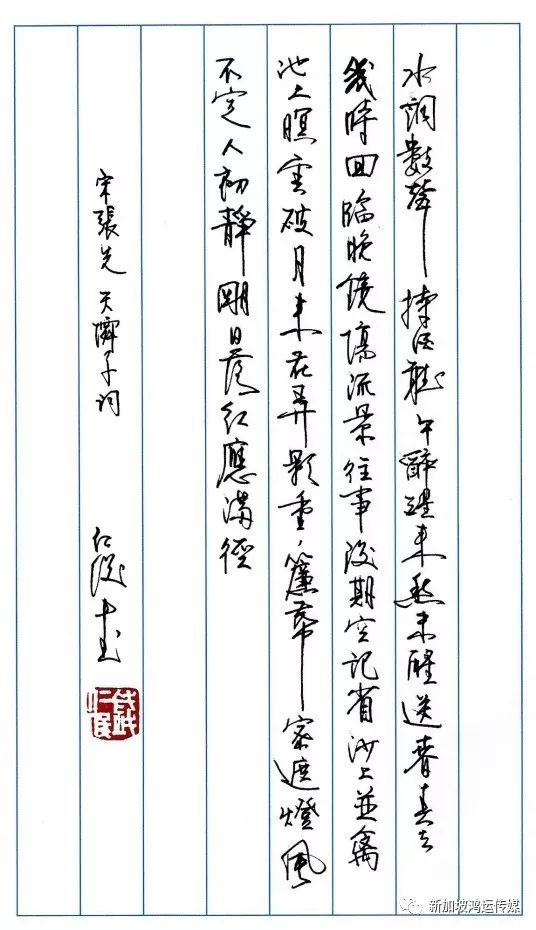 水調數聲持酒聽午醉醒來愁未醒送春春去
幾時回臨晚鏡傷流景往事後期空記省沙上並禽
池上暝雲破月來花弄影重重簾幕密遮燈風
不定人初靜明日落紅應滿徑
宋張先天僊子詞
新加坡鸿运传媒